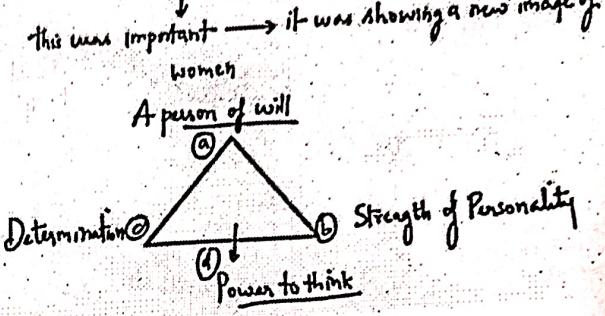 this was important → it was showing a new image of
women
A person of will
(a)
Determination (c)
(b) Strength of Personality
(d)
Power to think